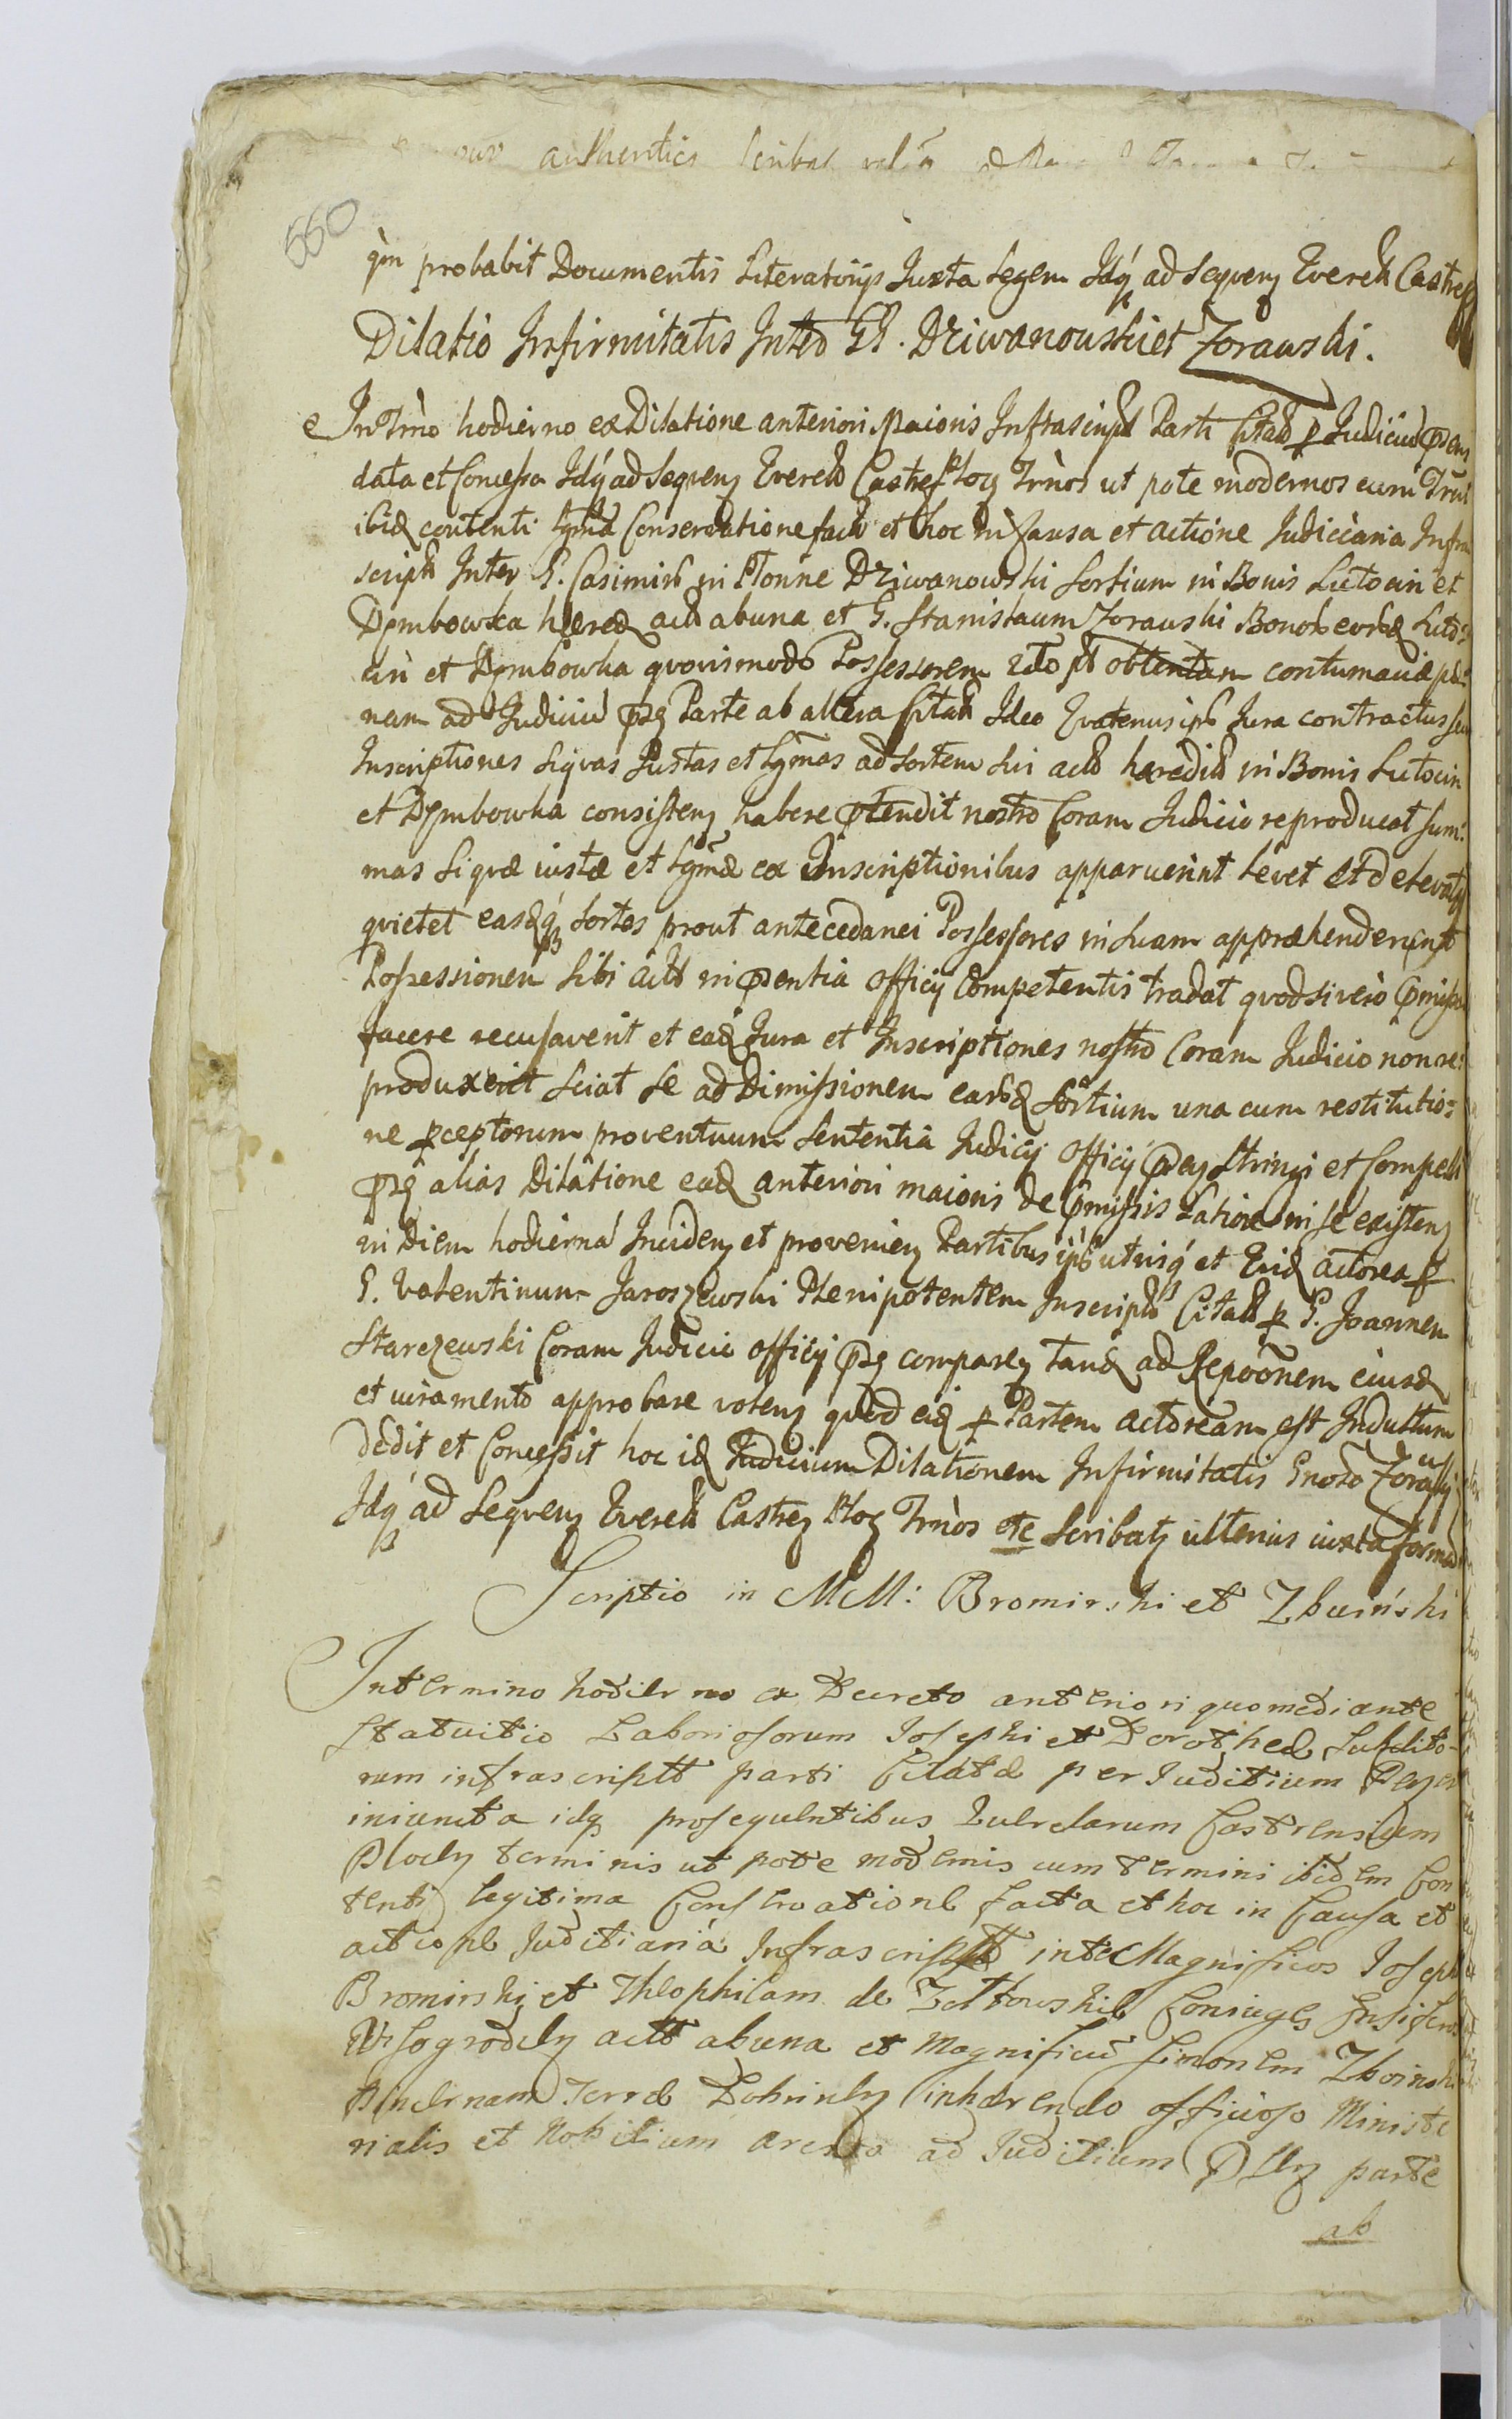 authentica
550
qm probabit Documentis Literatorijs Juxta Legem Idq ad Sequens Querel Castren
Dilatio Infirmitatis Inter GG. Dziwanowski et Zorawski.
In Trno hodierno ex Dilatione anteriori Maioris Infrascript Parti Citat p Judiciu prens
data et Concessa Idq ad Sequens Querel Castres Ploc Trnos ut pote modernos cum Trni
ibid contenti lgma Conservatione facta et hoc in Causa et actione Judiciaria Infra
script Inter G. Casimir in Płonne Dziwanowski Sortium in Bonis Lutocin et
Dembowka hered act ab una et G. Stanislaum Zorawski Bonor eord Luto:
cin et Dembowka quovismodo Possessorem obtentam contumaciæ pæ:
nam ad Judiciu prs Parte ab altera Citat Ideo Quatenus ips Jura contractus seu
Inscriptiones siqvas Justas et lgmas ad sortem sui act haredit in Bonis Lutocin
et Dembowka consistens habere prtendit nostro Coram Judicio reproducat sum:
mas siqvæ iustæ et lgmæ ex Inscriptionibus apparuerint levet et de elevatis
quietet easdq sortes prout antecedanei Possessores in suam appræhenderunt
Possessionem sibi act in prsentia officij Competentis tradat qvodsi vero prmissa
facere recusaverit et ead Jura et Inscriptiones nostro Coram Judicio non re:
produxerit sciat se ad Dimissionem eard sortium una cum restitutio:
ne pceptorum proventuum sententia Judicij officij prens stringi et Compelli
prs alias Dilatione ead anteriori maioris de prmissis Latiore in se existens
in Diem hodierna Incidens et proveniens Partibus ips utrisq et Quid actorea p
G. Valentinum Jaroszewski Plenipotentem Inscript Citat p G. Joannem
Starczewski Coram Judicio officij prs comparens tand ad Repoonem eiusd
et iuramento approbare volens quod eid p Partem actoream est Indultum
dedit et Concessit hoc id Judicium Dilationem Infirmitatis Gnoso Zorawski
Idq ad Sequens Querel Castren Ploc Trnos etc Scribatq ulterius iuxta formam
Scriptio in MM: Bromirski et Zboinski
In termino hodierno ex Decreto anteriori quo mediante
statuitio Laboriosorum Josephi et Dorotheæ Subdito-
rum infrascriptt parti Citatæ per Juditium Prens
iniuncta idq prosequentibus Querelarum Castrensium
Plocen terminis ut pote modernis cum termini ibidem Con
tenti legitima Conservatione facta et hoc in Causa et
actione Juditiaria Infrascriptt inter Magnificos Joseph
Bromirski et Theophilam de Zołtowskie Coniuges Ensiferos
Wisogroden actt ab una et Magnificu Simonem Zboinski
Pincernam Terræ Dobrinen inhærendo officioso Ministe
rialis et Nobilium aresto ad Juditium Prsens parte
ab